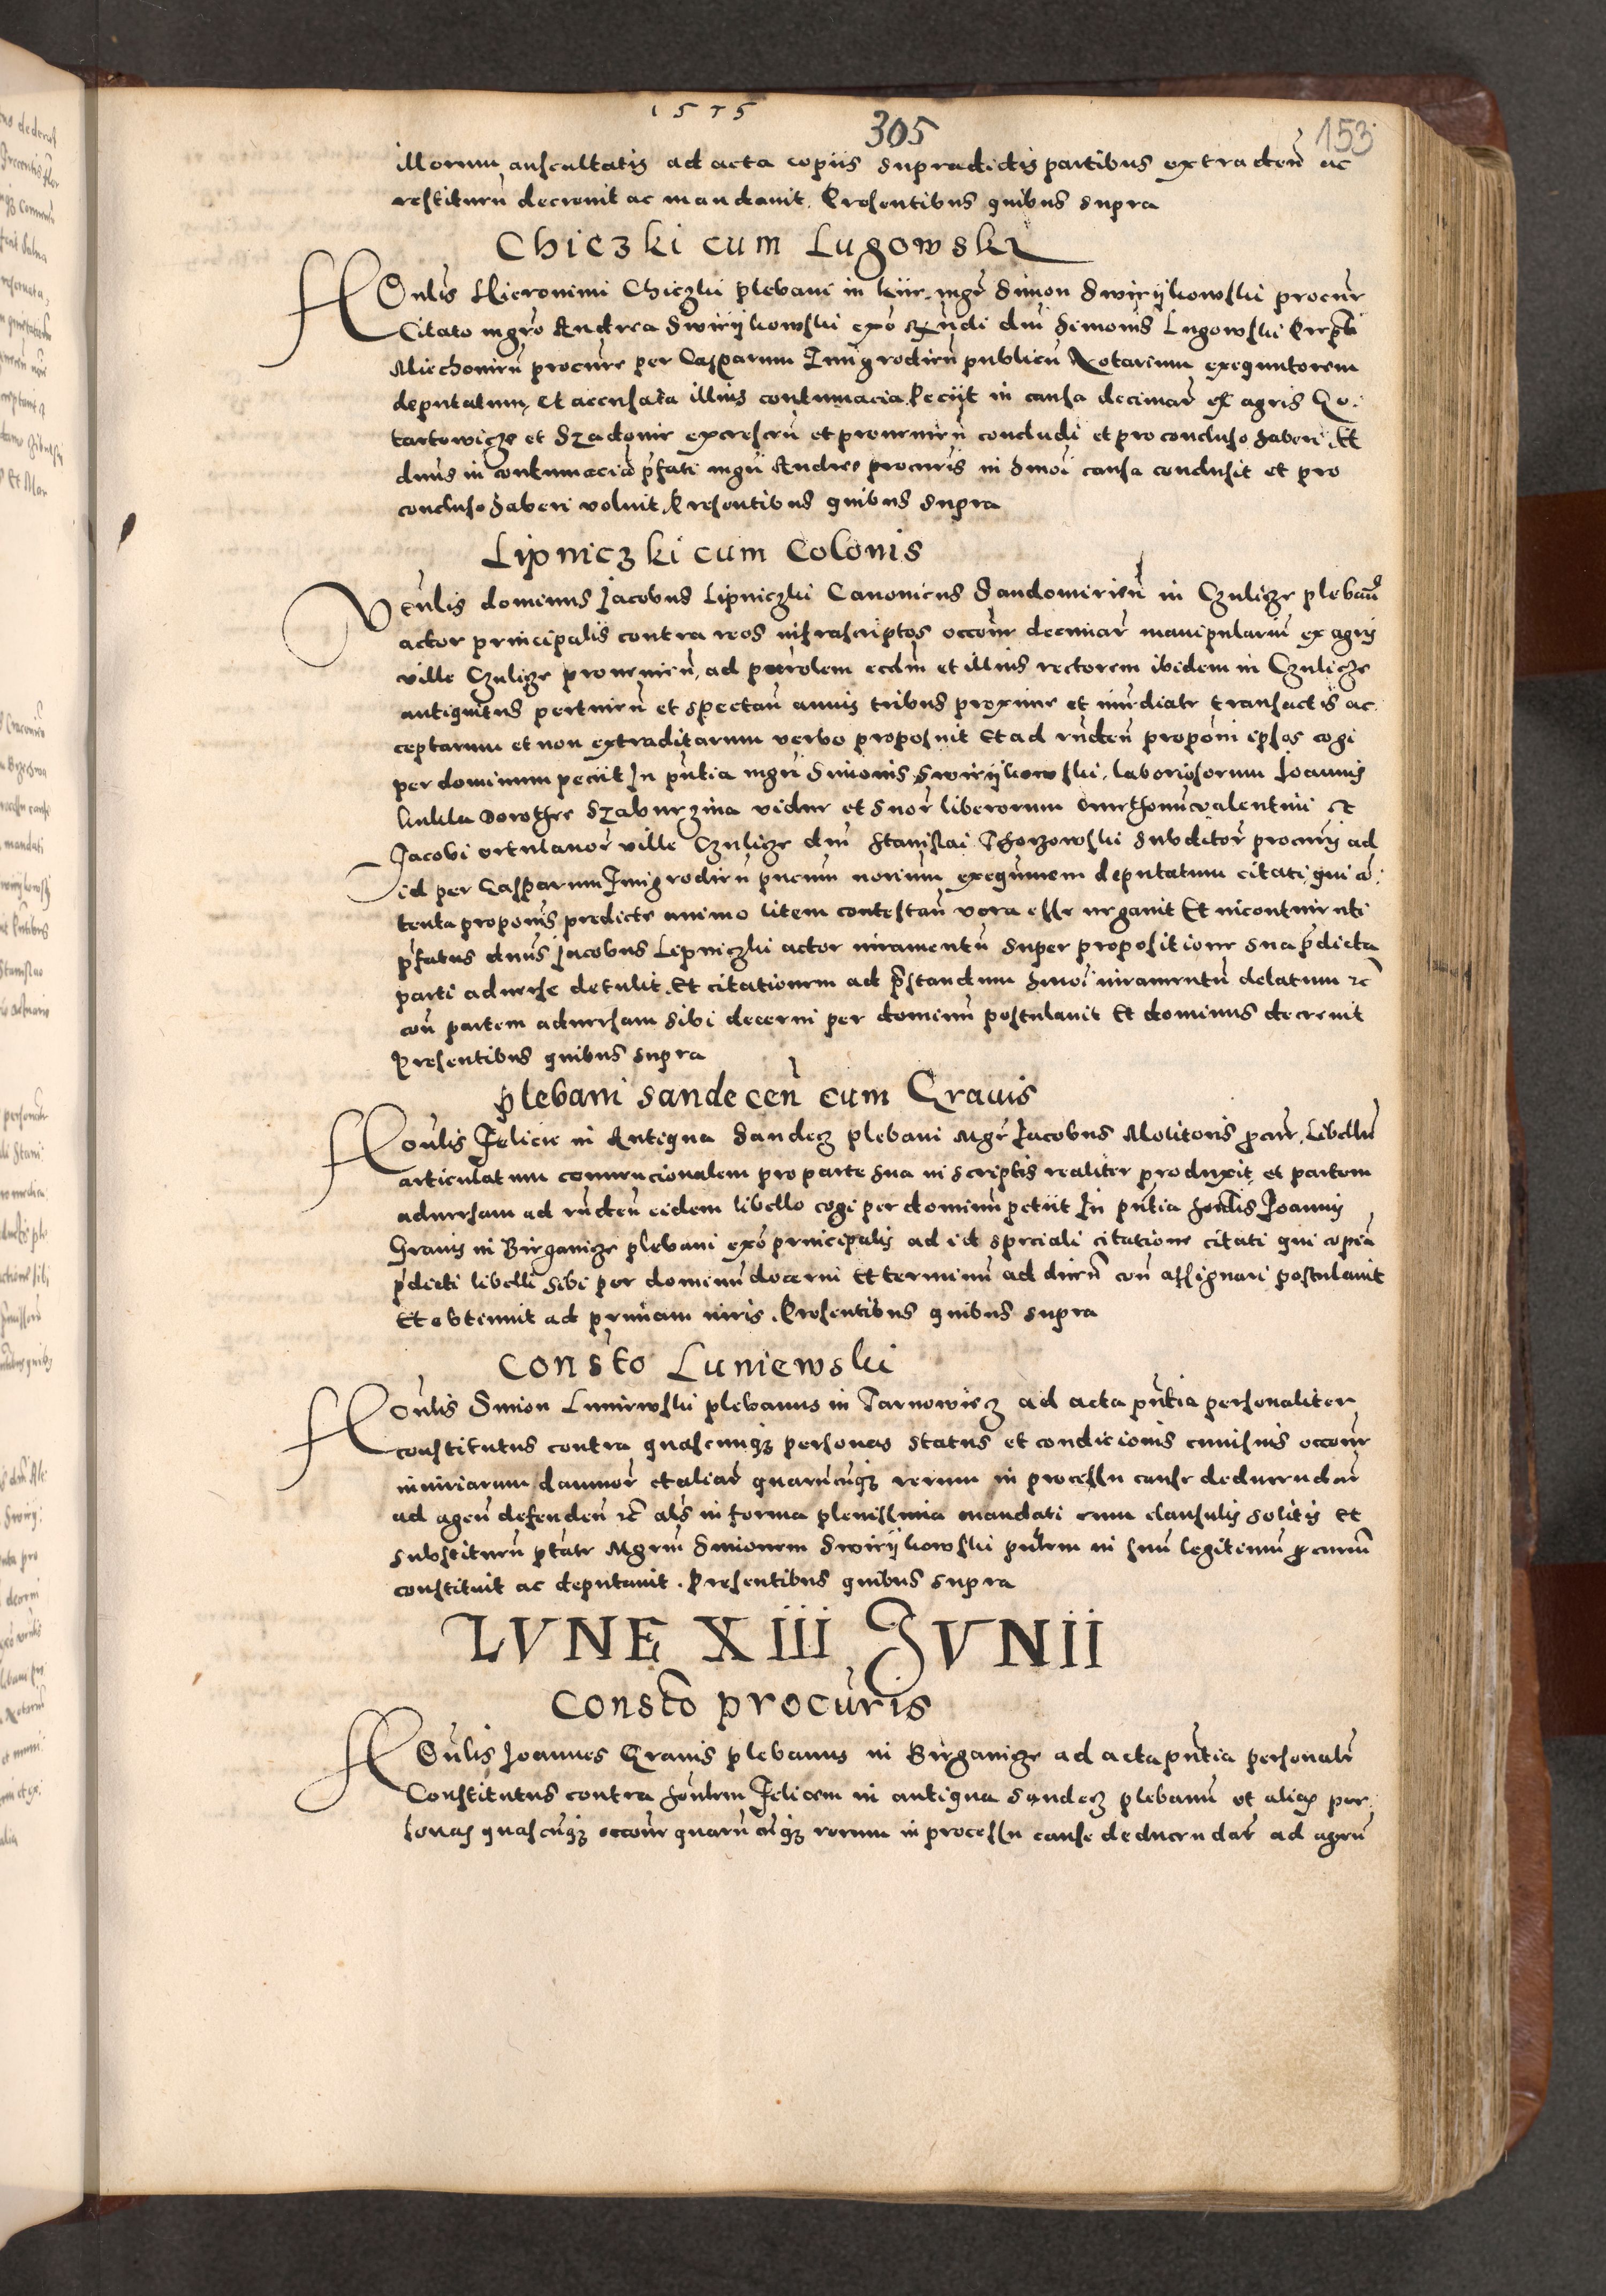 1575
305
153
illorum auscultatis ad acta copiis supradictis partibus extraden̄ ac
restituen̄ decrevit ac mandavit. Presentibus quibus supra
Chiczki cum Lugowski
HOnl̄is Hieronimi Chiczki plebani in Kiir mgr̄ Simon Swiryjkowski procur̄
Citato mgr̄o Andrea Swiryjkowski exo dni Simonis Lugowski
Miechovien̄ procur̄e per Casparum Jmigrodien̄ publicū Notarium exequutorem
deputatum, et accusata illius contumacia Peciit in causa decimar̄ ex agris
tartowicze et Szadowie excrescen̄ et provenien̄ concludi et pro concluso haberi. Et
dnus in contumaciā p̄fati mgri Andree procuris in hmōi causa conclusit et pro
concluso haberi voluit. Presentibus quibus supra
Lipniczki cum Colonis
Venl̄is dominus Jacobus Lipniczki Canonicus Sandomirien̄ in Czulicze pleban⁹
actor principalis contra reos infrascriptos occōne decimar̄ manipulariū ex agris
ville Czulicze provenien̄, ad parrolem eccl̄m et illius rectorem ibidem in Czulicze
antiquitus pertinen̄ et spectan̄ annis tribus proxime et imēdiate transactis ac
ceptarum et non extraditarum verbo proposuit Et ad rn̄den̄ propōni ipsas cogi
per dominum peciit In pn̄tia mgri Simonis Swiryjkowski, laboriosorum Joannis
Kukla Dorothee Szaburzina vidue et suor̄ liberorum Valentini et
Jacobi ortulanor̄ ville Czulicze dni Stanislai Thorzowski subditor̄ procuris ad
id per Casparum Jmigrodien̄ pucum norium exequutiuem deputatum citati, qui ā
tenta proponis predicte animo litem contestan̄ vera esse negavit Et incontinenti
p̄fatus dnūs Jacobus Lipniczki actor iuramentū super propositione sua p̄dicta
parti adverse detulit. Et citationem ad p̄standum hmōi iuramentū delatum &c
con̄ partem adversam sibi decerni per dominū postulavit Et dominus decrevit
Presentibus quibus supra
plebani sandecen̄ cum Gravis
Honl̄is Felicis in Antiqua Sandecz plebani Mgr̄ Jacobus Molitoris p̄cur̄, Libellū
articulatum convencionalem pro parte sua in scriptis realiter produxit, et partem
adversam ad rn̄den̄ eidem libello cogi per dominū petiit In pn̄tia honl̄is Joannis
Gravis in Bieganicze plebani exo principalis ad id speciali citatione citati qui copiā
p̄dicti libelli sibi per dominū decerni Et terminū ad dicen̄ con̄ assignari postulavit
Et obtinuit ad primam iuris. Presentibus quibus supra
Constō Luniewski
Honl̄is Simon Luniewski plebanus in Tarnowiecz ad acta pn̄tia personaliter
constitutus contra quascunqȝ personas status et condicionis cuiusvis occōne
iniuriarum damnor̄ et aliar̄ quarūcūqȝ rerum in processu cause deducendar̄
ad agen̄ defenden̄ &c als in forma plenissima mandati cum clausulis solitis Et
substituen̄ p̄tate Mgrm̄ Simonem Swiryjkowski pn̄tem in suū legitimū p̄curm̄
constituit ac deputavit. Presentibus quibus supra
LVNE XIII JVNII
Constō procūris
HOnl̄is Joannes Gravis plebanus in Bieganicze ad acta pn̄tia personalr̄
Constitutus contra honlem Felicem in antiqua Sandecz plebanū et alias per
sonas quascūqȝ occōne quarūcūqȝ rerum in processu cause deducendar̄ ad agen̄